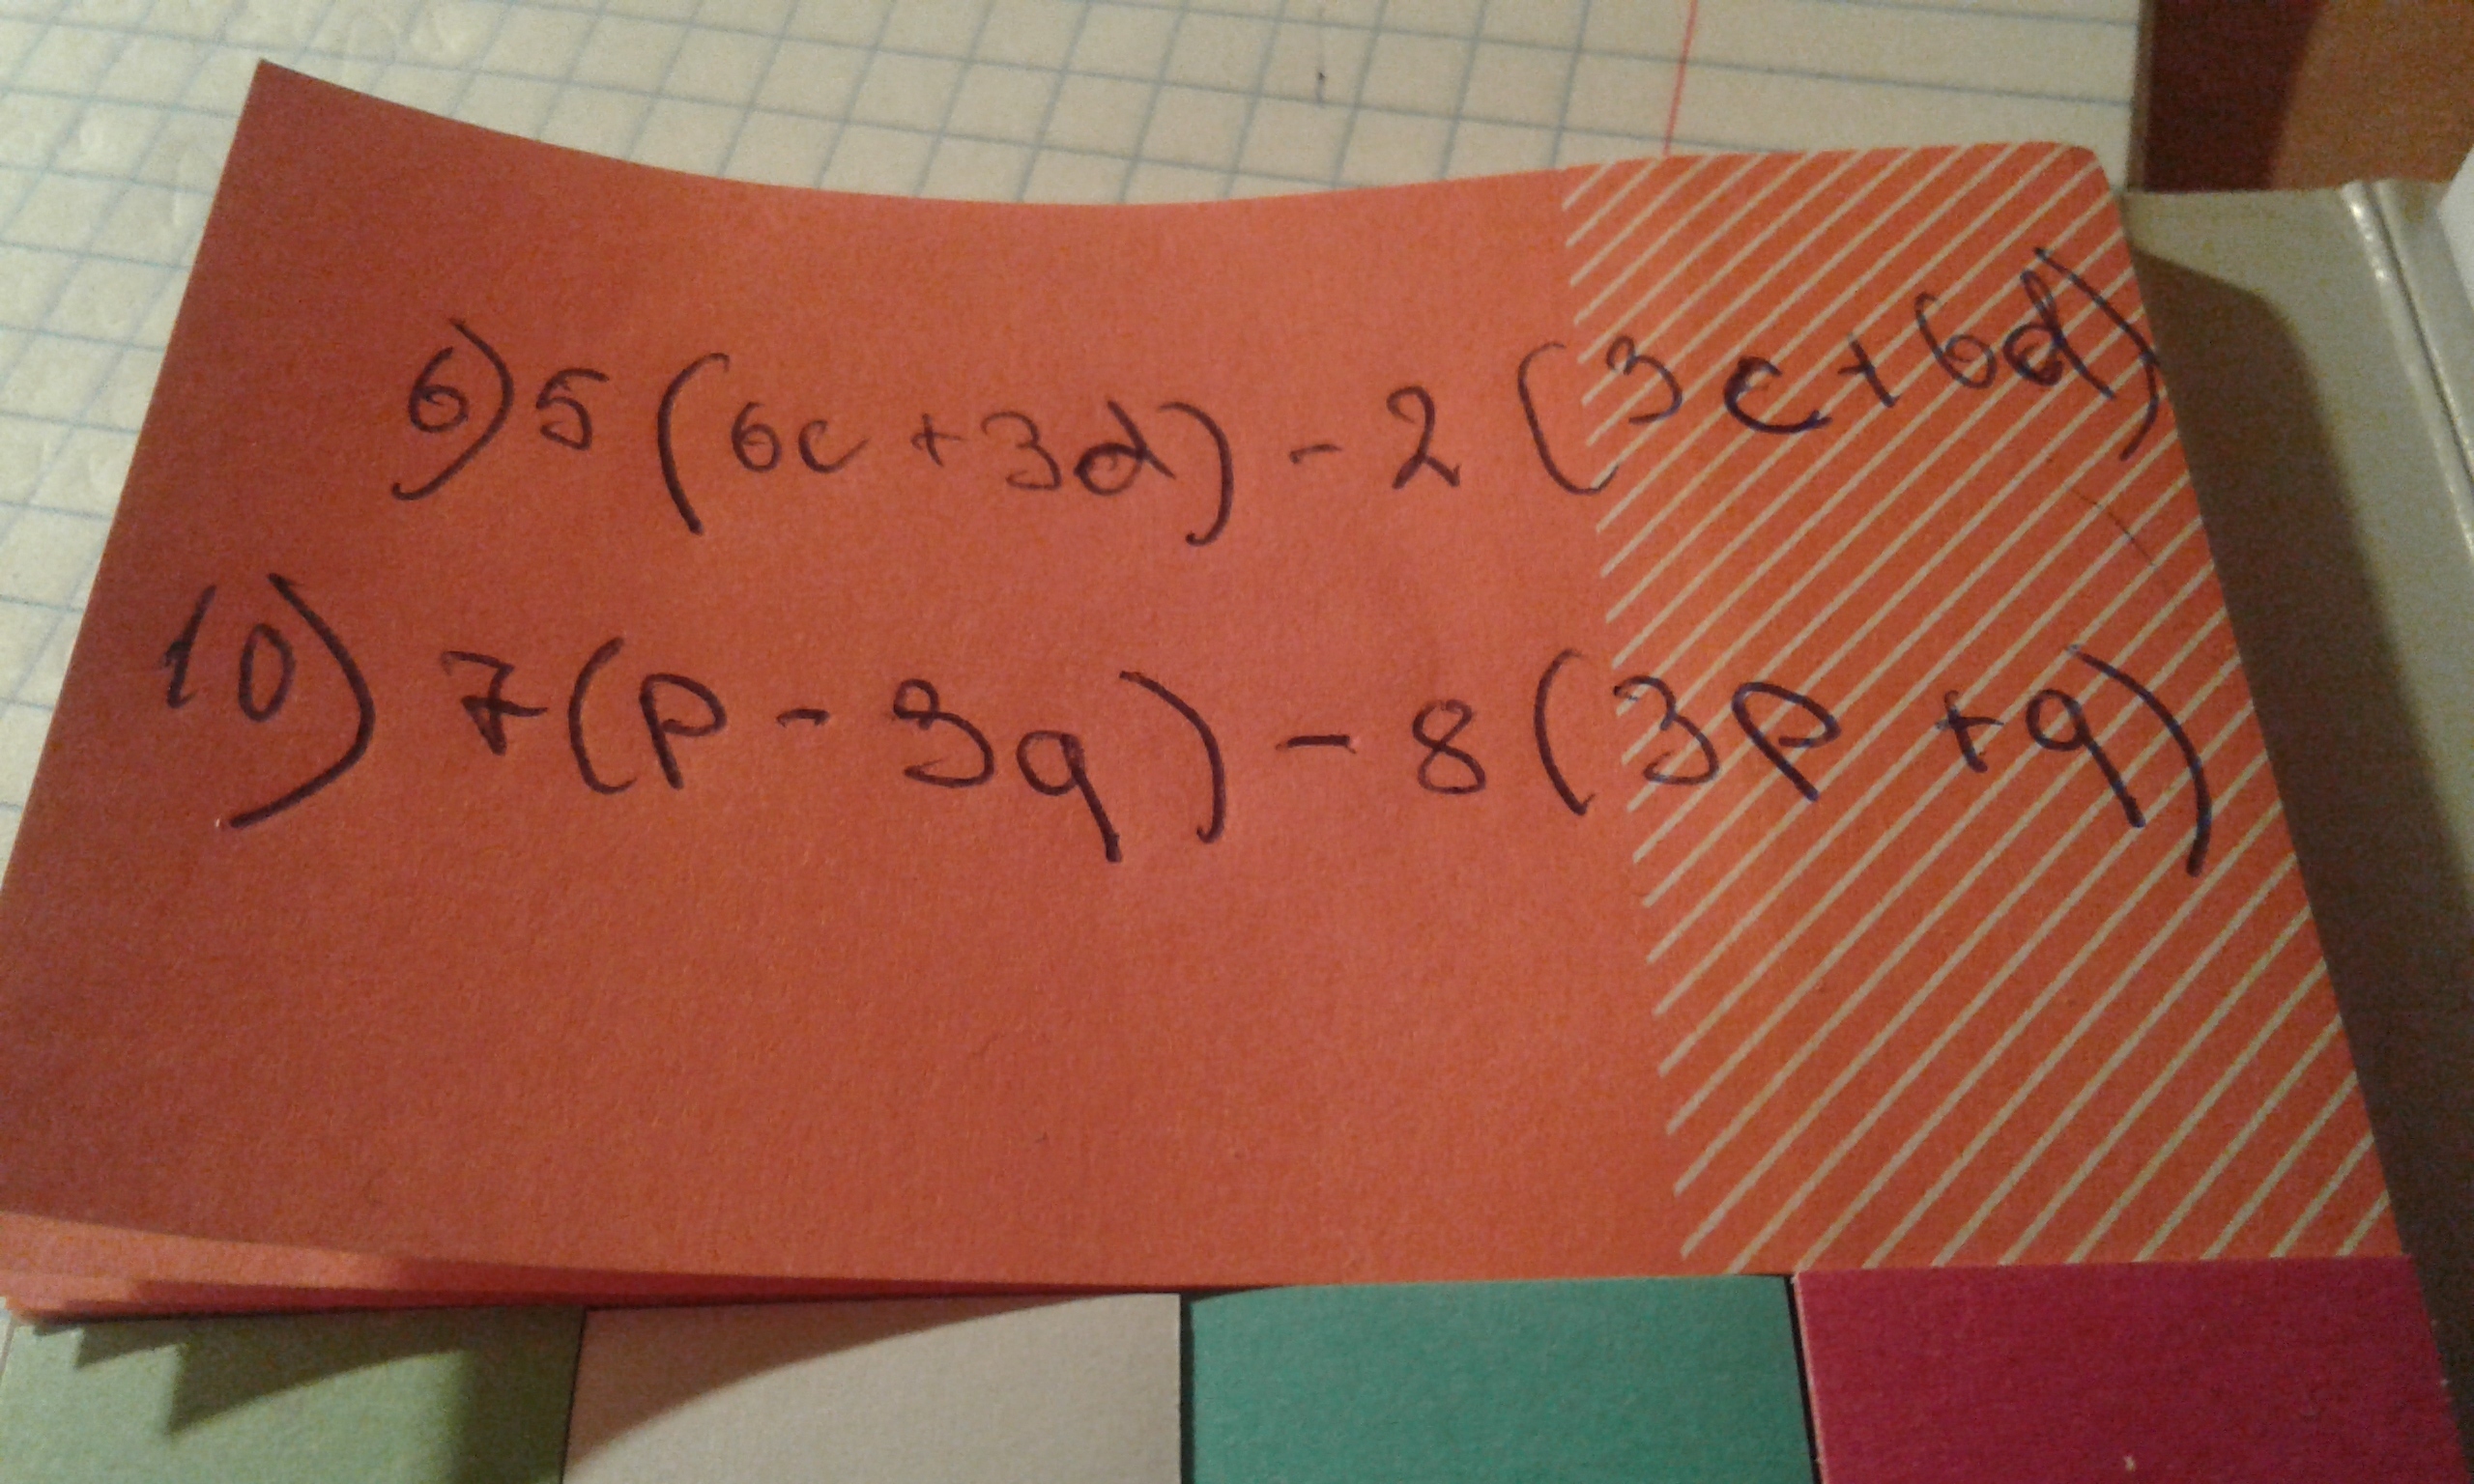 6) 5 (6c + 3d) - 2 (3c + 6d)
10) 7(p - 3q) - 8 (3p + q)